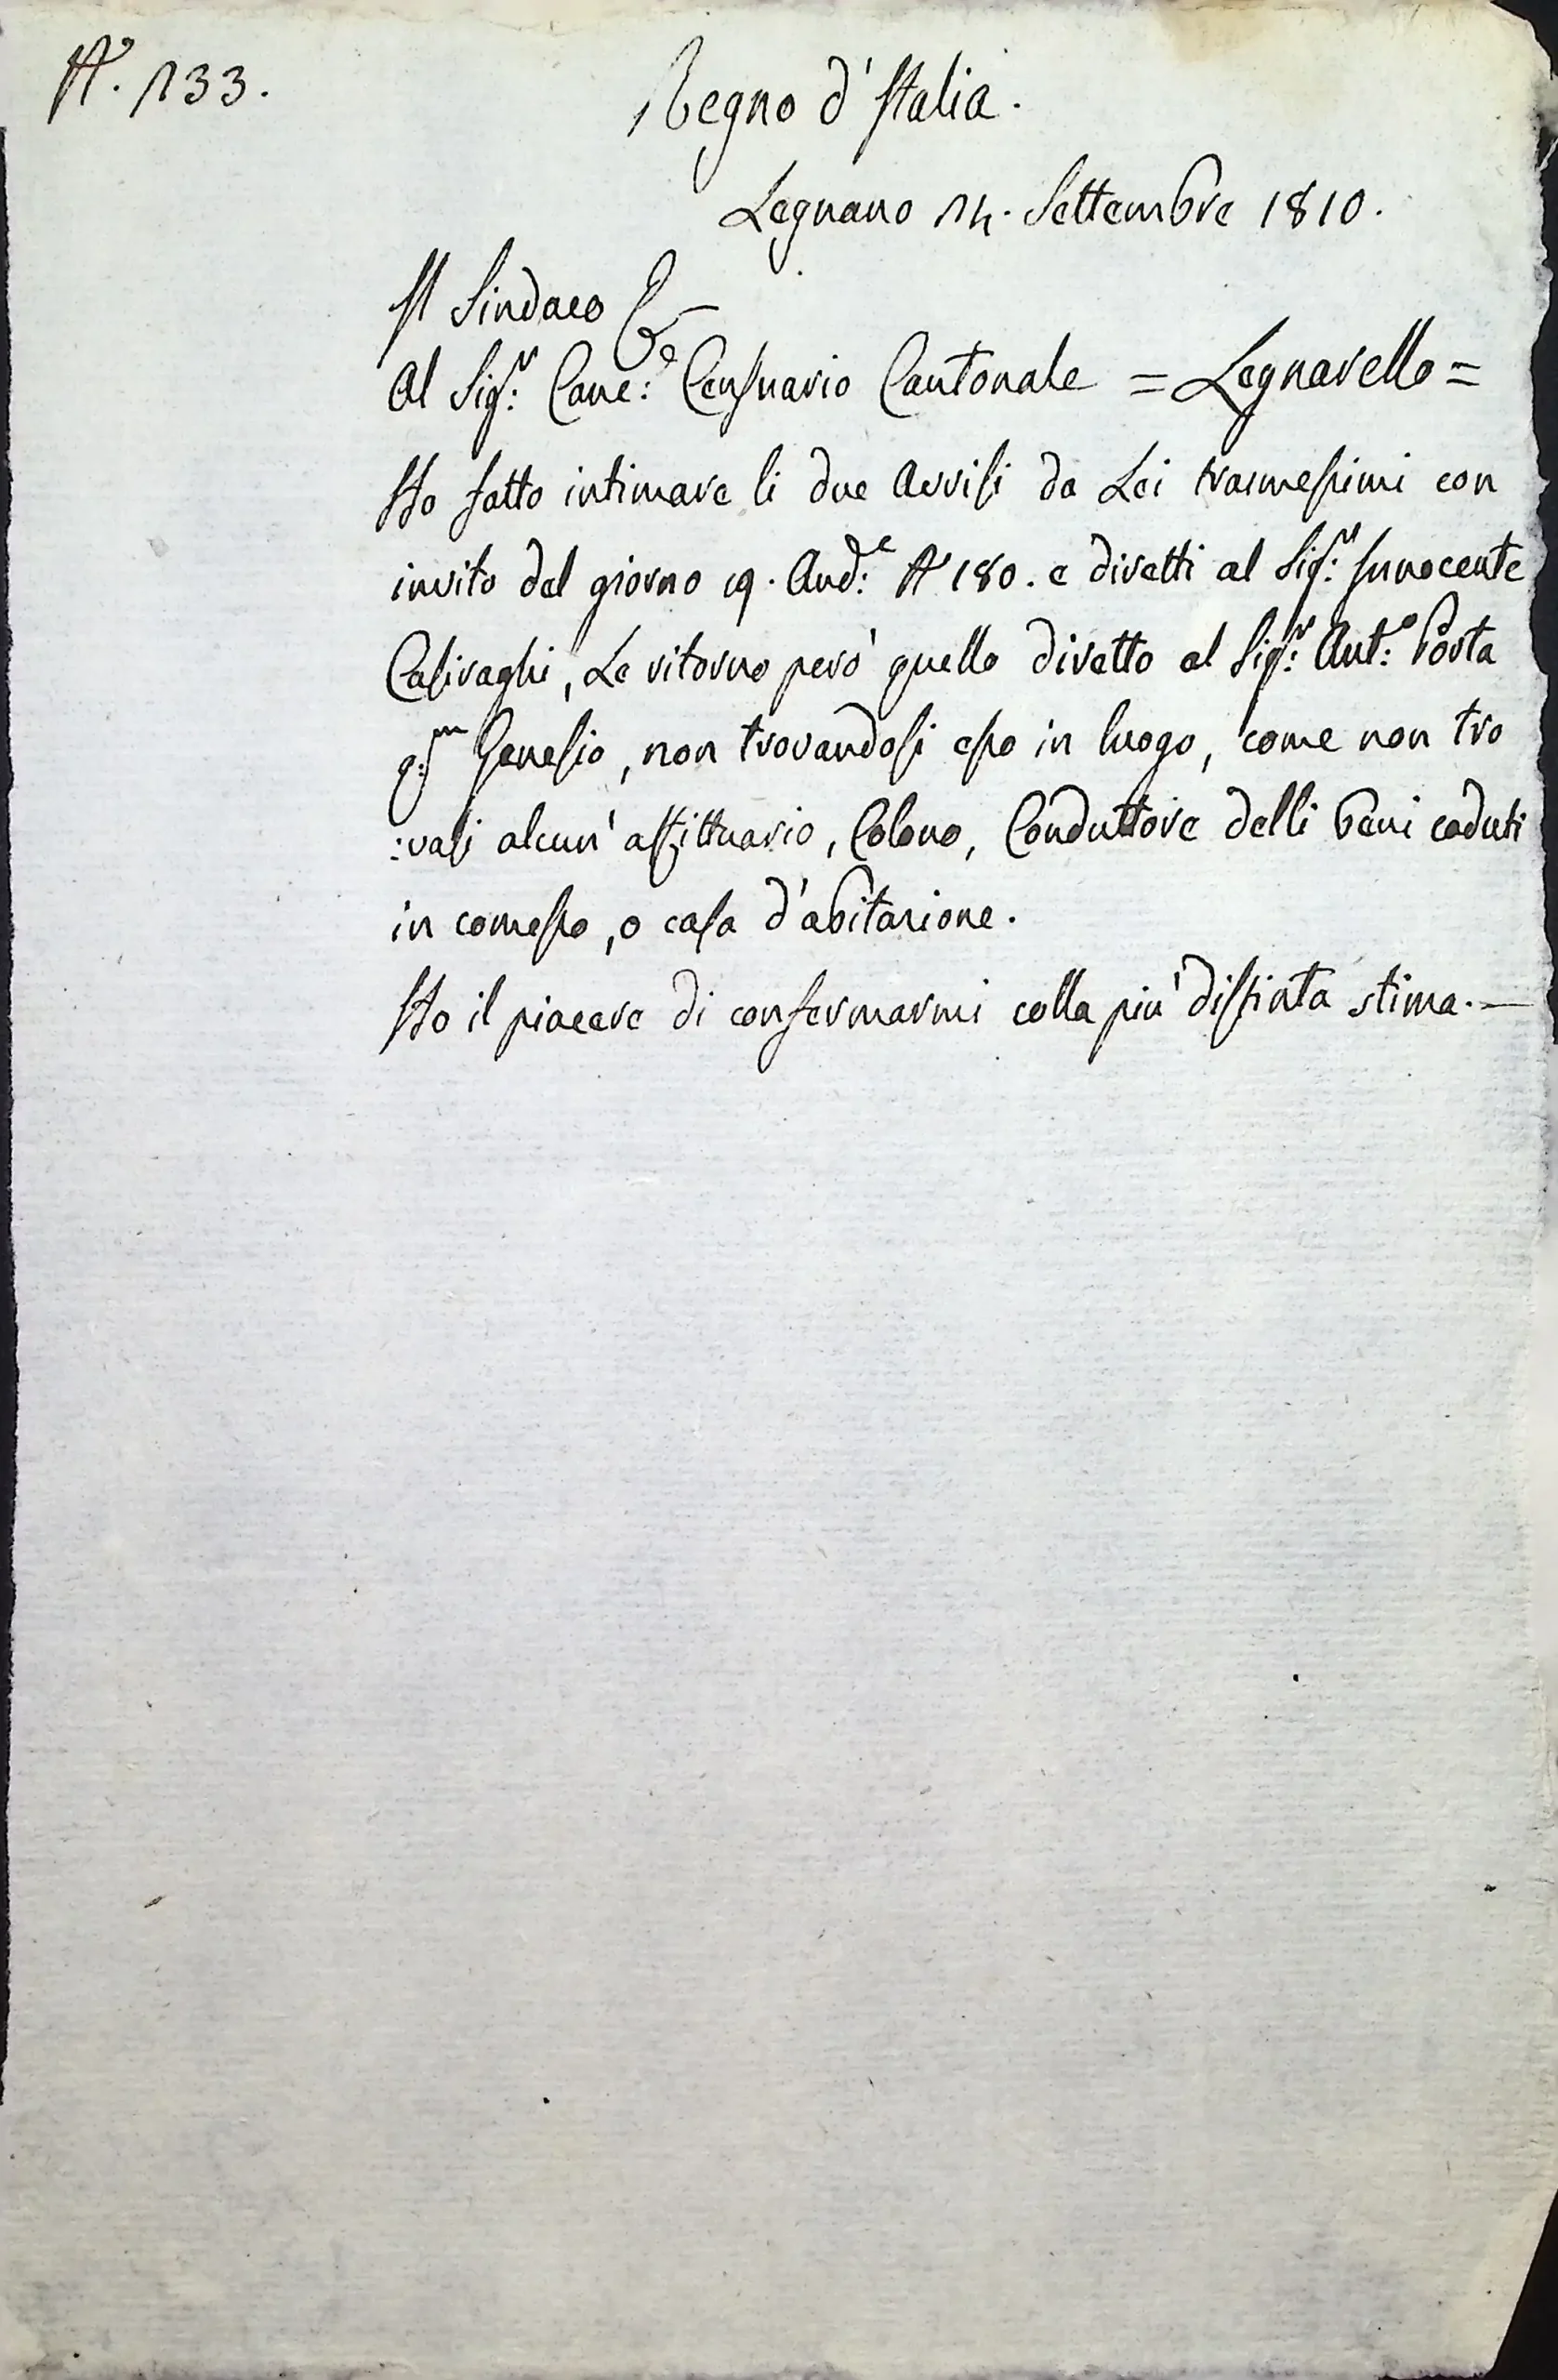 N.° 133.
Regno d'Italia.
Legnano 14. Settembre 1810.
Il Sindaco
Al Sig.r Canc.e Censuario Cantonale = Legnarello =
Ho fatto intimare li due Avvisi da Lei trasmessimi con
invito del giorno 19. And.e N.° 180. e diretti al Sig.r Innocente
Casiraghi, Le ritorno però quello diretto al Sig.r Ant.o Porta
q.m Genesio, non trovandosi esso in luogo, come non tro
:vasi alcun' affittuario, Colono, Conduttore delli beni caduti
in comesso, o casa d'abitazione.
Ho il piacere di confermarmi colla più distinta stima. —